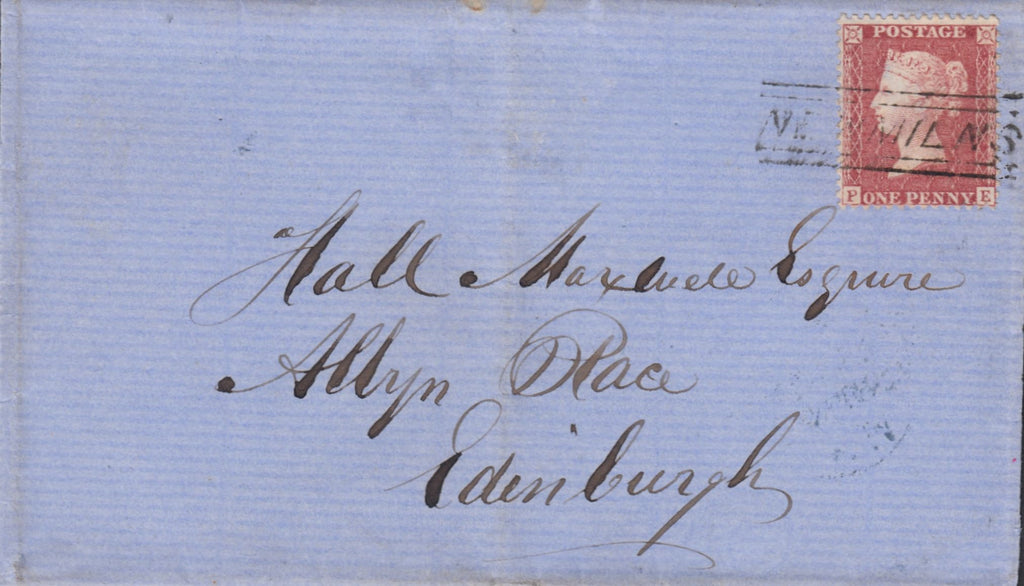 POSTAGE
P ONE PENNY E
Hall Maxwele Esquire
Albyn Place
Edinburgh